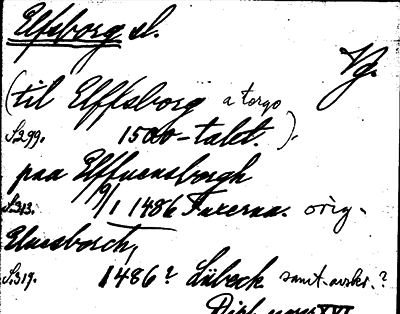 Elfsborg sl.
Vg.
(til Elffsborg a torgo
S.299. 1500-talet.)
paa Elffuensborgh
S.313. 9/1 1486 Faxerna. orig.
Eluesborch,
S.319. 1486? Lübeck samt. avskr.?
Dipl. XVI